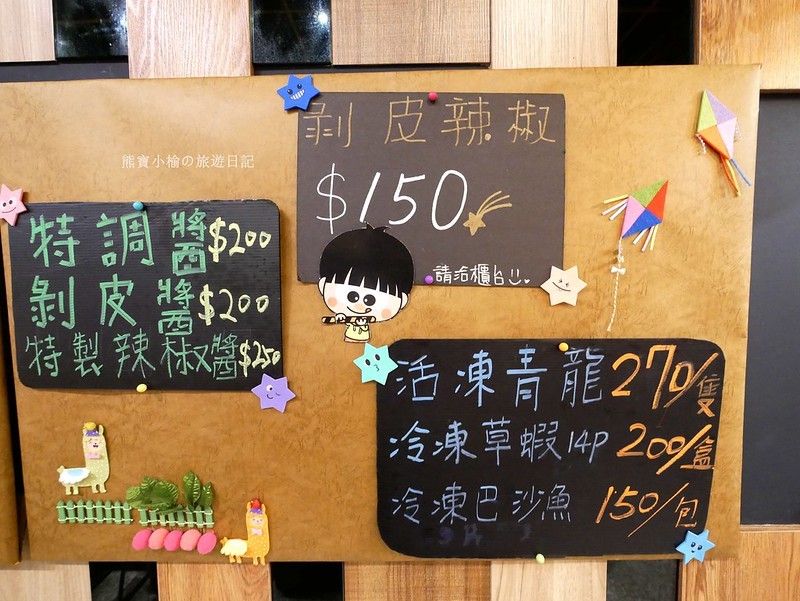 熊寶小榆の旅遊日記
剝皮辣椒
$150
請洽櫃台
特調醬$200
剝皮醬$200
特製辣椒醬$250
活凍青龍270/隻
冷凍草蝦14P 200/盒
冷凍巴沙魚 150/包